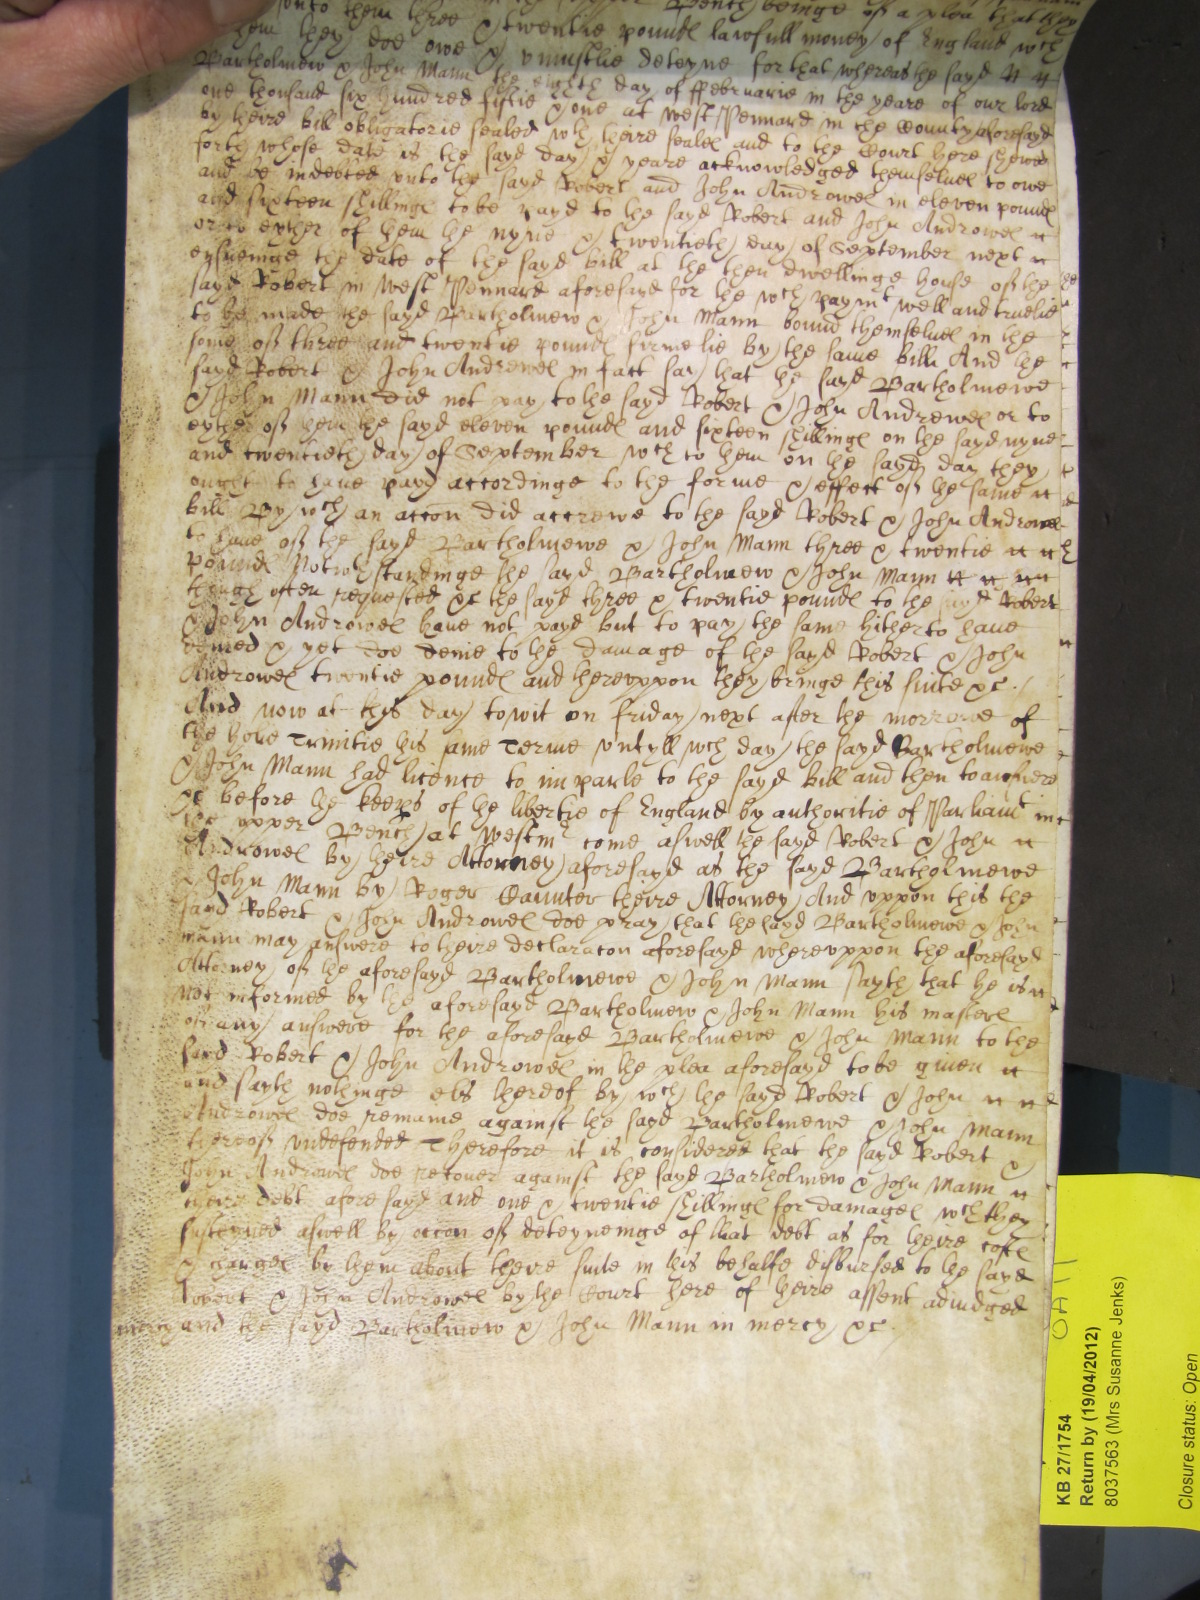 Bench beinge of a plea that they
unto them three & twentie pound lawfull money of England wch
them they doe owe & uniustlie deteyne for that whereas the sayd
Bartholmew & John Mann the eighth day of ffebruarie in the yeare of our lord
one thousand six hundred fiftie & one at West Pennard in the County aforesayd
by theire bill obligatorie sealed wth theire seales and to the Court here shewed
forth whose date is the sayd day & yeare acknowledged themselves to owe
and be indebted unto the sayd Robert and John Androwes in eleven pounds
and sixteen shillings to be payd to the sayd Robert and John Androwes
or to eyther of them the nyne & twentieth day of September next
ensueinge the date of the sayd bill at the then dwellinge house of the
sayd Robert in West Pennard aforesayd for the wch paymt well and truelie
to be made the sayd Bartholmew & John Mann bound themselves in the
some of three and twentie pounds firmelie by the same bill And the
sayd Robert & John Androwes in fact say that the sayd Bartholmewe
& John Mann did not pay to the sayd Robert & John Andrewes or to
eyther of them the sayd eleven pounds and sixteen shillings on the sayd nyne
and twentieth day of September wch to them on the sayd day they
ought to have payd accordinge to the forme & effect of the same
bill By wch an accon did accrewe to the sayd Robert & John Androwes
to have of the sayd Bartholmewe & John Mann three & twentie
pounds Notwthstandinge the sayd Bartholmew & John Mann
though often requested &c the sayd three & twentie pounds to the sayd Robert
& John Androwes have not payd but to pay the same hitherto have
denied & yet doe denie to the damage of the sayd Robert & John
Androwes twentie pounds and thereuppon they bringe this suite &c.
And now at this day to wit on Friday next after the morrowe of
the holie Trinitie this same Terme untyll wch day the sayd Bartholmewe
& John Mann had licence to imparle to the sayd bill and then to answere
&c before the keeps of the libertie of England by authoritie of Parliamt in
the upper Bench at Westmr come aswell the sayd Robert & John
Androwes by theire Attorney aforesayd as the sayd Bartholmewe
& John Mann by Roger Caunter theire Attorney And uppon this the
sayd Robert & John Androwes doe pray that the sayd Bartholmewe & John
Mann may answere to theire declaracon aforesayd whereuppon the aforesayd
Attorney of the aforesayd Bartholmewe & John Mann sayth that he is
not informed by the aforesayd Bartholmew & John Mann his masters
of any answere for the aforesayd Bartholmewe & John Mann to the
sayd Robert & John Androwes in the plea aforesayd to be given
and sayth nothinge els thereof by wch the sayd Robert & John
Androwes doe remaine against the sayd Bartholmewe & John Mann
thereof undefended Therefore it is considered that the sayd Robert &
John Androwes doe recover against the sayd Bartholmew & John Mann
theire debt aforesayd and one & twentie shillings for damages wch they
susteyned aswell by occon of deteyneinge of that debt as for theire costs
& charges by them about theire suite in this behalfe disbursed to the sayd
Robert & John Androwes by the Court here of theire assent adiudged
mercy and the sayd Bartholmew & John Mann in mercy &c.
KB 27/1754
Return by (19/04/2012)
8037563 (Mrs Susanne Jenks)
Closure status: Open